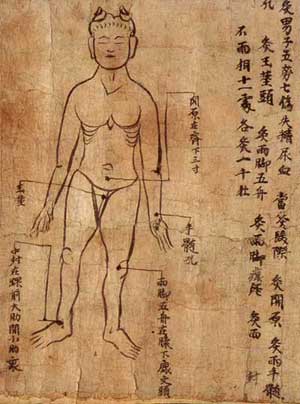 灸男子五勞七傷失精尿血 當灸際 灸關原 灸兩手髓
孔 灸玉莖頭 灸兩脚五舟 灸兩脚 灸兩 封
不兩相十一處各灸一千壯
關原在齊下三寸
手髓孔
兩脚五舟在膝下文頭
玉莖
中封在踝前大肋間小